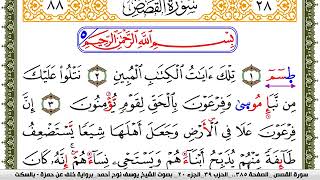 ٢٨ سُورَةُ القَصَصِ ٨٨
بِسْمِ اللَّهِ الرَّحْمَٰنِ الرَّحِيمِ
طسٓمٓ ١ تِلْكَ ءَايَٰتُ الْكِتَٰبِ الْمُبِينِ ٢ نَتْلُوا۟ عَلَيْكَ
مِن نَّبَإِ مُوسَىٰ وَفِرْعَوْنَ بِالْحَقِّ لِقَوْمٍ يُؤْمِنُونَ ٣ إِنَّ
فِرْعَوْنَ عَلَا فِي الْأَرْضِ وَجَعَلَ أَهْلَهَا شِيَعًا يَسْتَضْعِفُ
طَآئِفَةً مِّنْهُمْ يُذَبِّحُ أَبْنَآءَهُمْ وَيَسْتَحْيِۦ نِسَآءَهُمْ إِنَّهُۥ كَانَ
سورة القصص . الصفحة ٣٨٥ . الحزب ٣٩ . الجزء ٢٠ . بصوت الشيخ يوسف نوح أحمد . برواية خلف عن حمزة - بالسكت